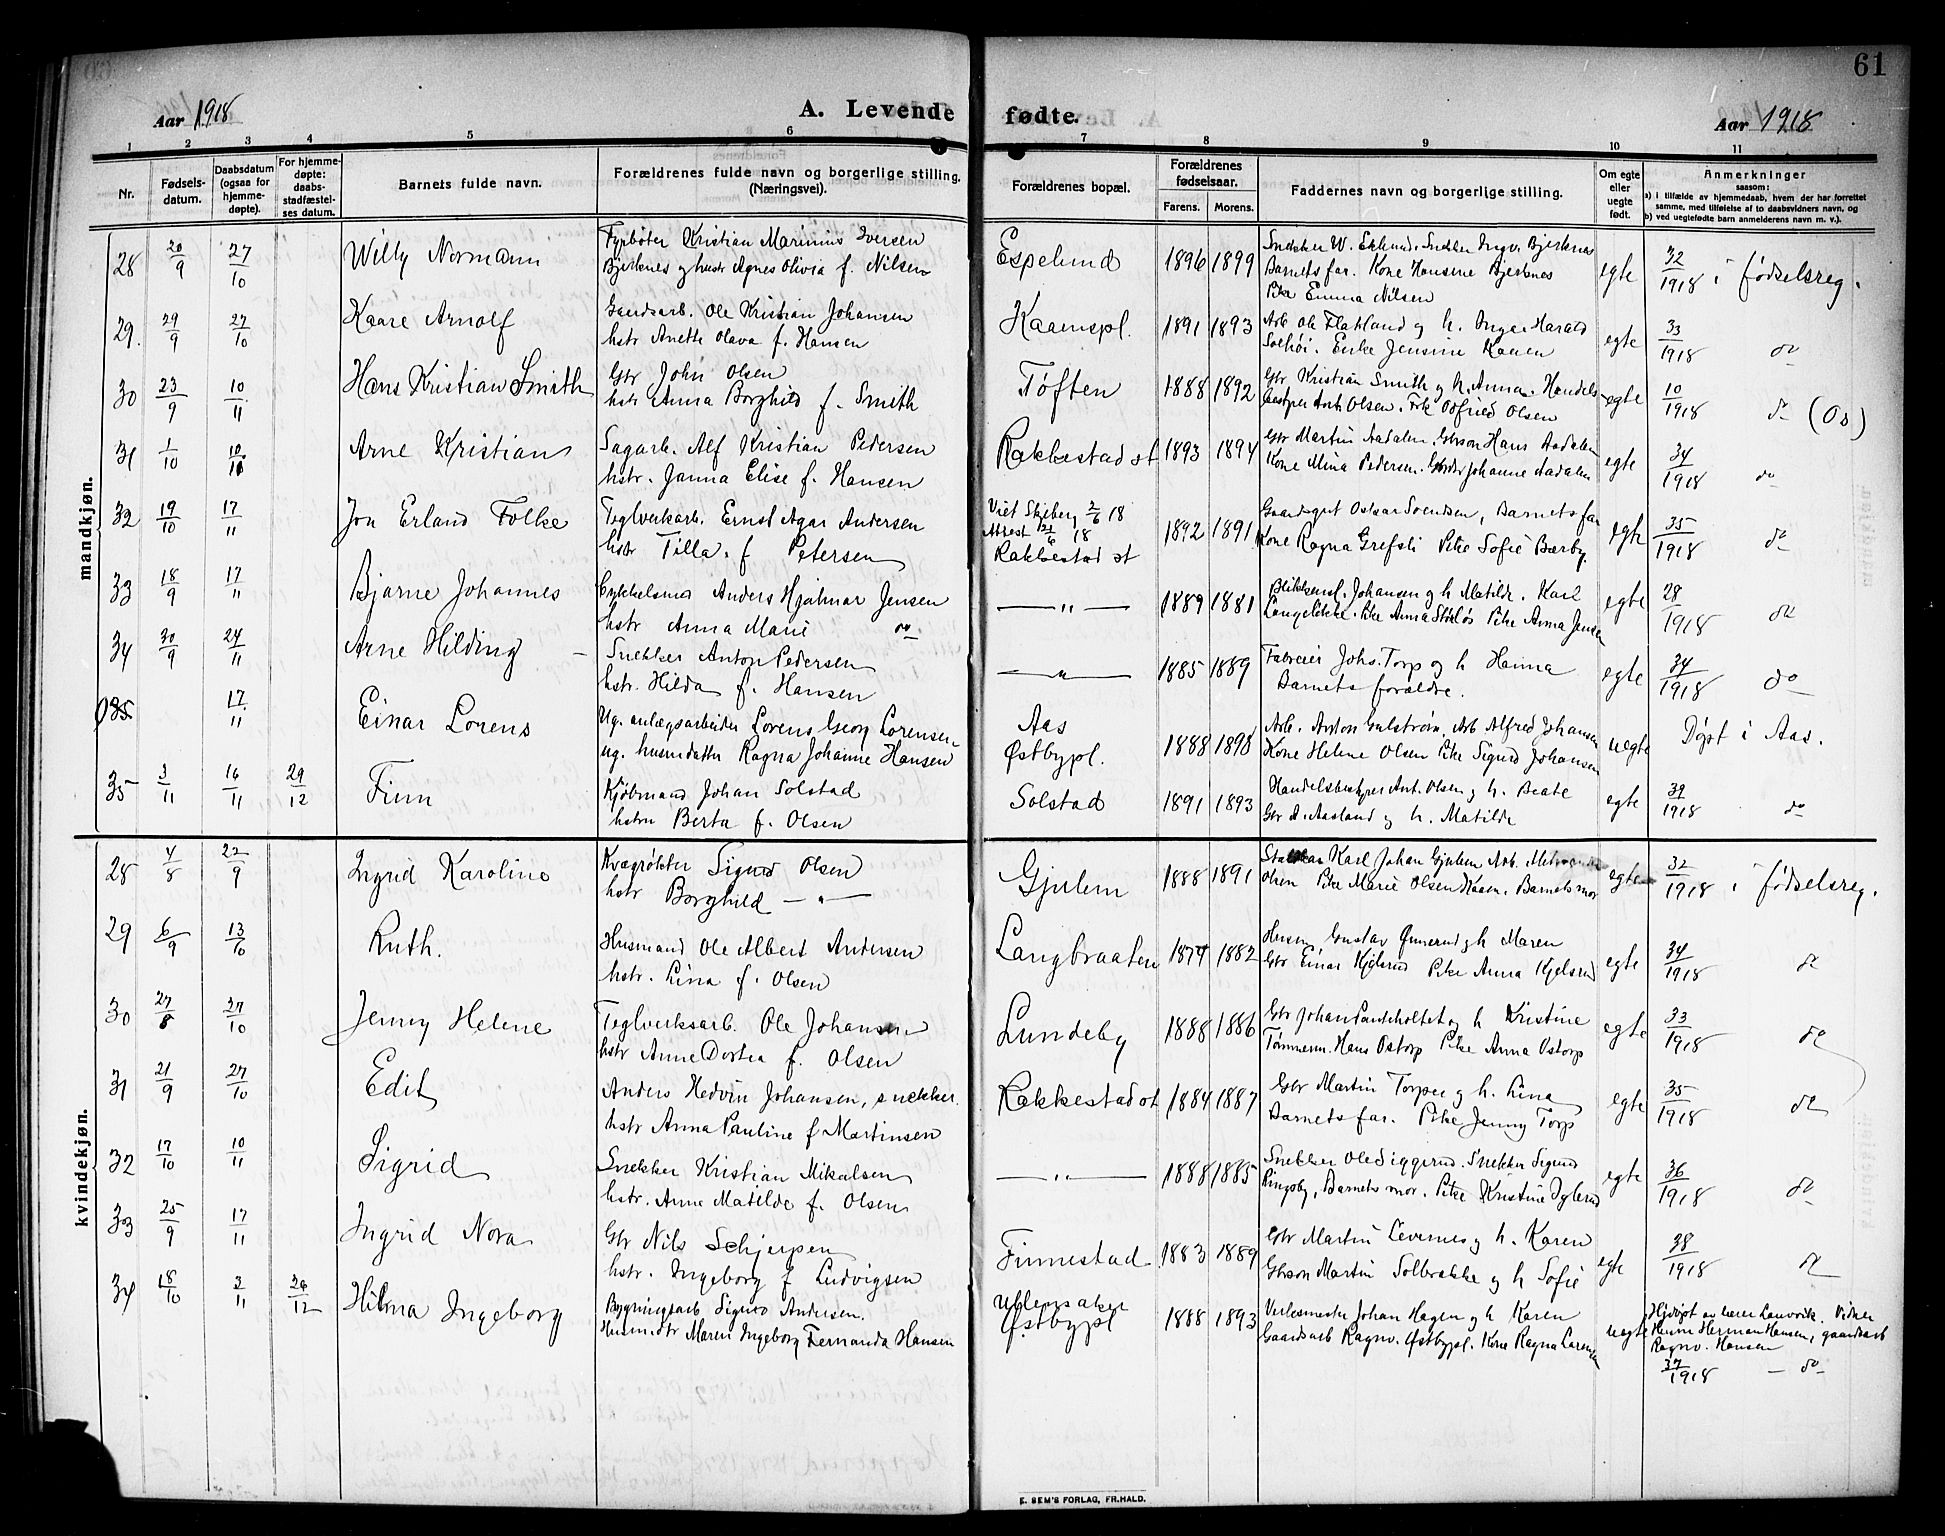 61
Aar 1918
A. Levende fødte.
Aar 1918
1 2 3 4 5 6 7 8 9 10 11
Nr.
Fødsels-
datum.
Daabsdatum
(ogsaa for
hjemme-
døpte).
For hjemme-
døpte:
daabs-
stadfæstel-
ses datum.
Barnets fulde navn.
Forældrenes fulde navn og borgerlige stilling.
(Næringsvei).
Forældrenes bopæl.
Forældrenes
fødselsaar.
Farens. Morens.
Faddernes navn og borgerlige stilling.
Om egte
eller
uegte
født.
Anmerkninger
saasom:
a) i tilfælde av hjemmedaab, hvem der har forrettet
samme, med tilføielse af to daabsvidners navn, og
b) ved uegtefødte barn anmelderens navn m. v.).
mandkjøn.
28 20/9 27/10 Willy Normann
Fyrbøter Kristian Marinius Iversen
Bjerknes og hustr Agnes Olivia f. Nilsen
Espelund 1896 1899
Snekker W. Eklund. Snekker Ingv. Bjerknes
Barnets far. Kone Hansine Bjerknes
Pike Emma Nilsen
egte 32/1918 i fødselsreg.
29. 29/9 27/10 Kaare Arnolf
Gaardsarb. Ole Kristian Johansen
hstr Anette Olava f. Hansen
Kaenspl. 1891 1893
Arb Ole Flatland og h. Inga. Harald
Solhøi. Enke Jensine Kaaen
egte 33/1918 do
30 23/9 10/11 Hans Kristian Smith
Gbr John Olsen
hstr Anna Borghild f. Smith
Toften 1888 1892
Gbr Kristian Smith og h. Anna. Handels-
bestyrer Ant. Olsen. Frk Odfried Olsen
egte 10/1918 do (Os)
31 1/10 10/11 Arne Kristian
Sagarb. Alf Kristian Pedersen
hstr. Janna Elise f. Hansen
Rakkestad st 1893 1894
Gbr Martin Aadalen. Gbrson Hans Aadalen
Kone Mina Pedersen. Johanne Aadalen
egte 34/1918 do
32 19/10 17/11 Jon Erland Folke
Teglverksarb. Ernst Agar Andersen
hstr Tilla. f Petersen
Viet Skjeberg 2/6 18
Attest 21/6 18
Rakkestad st 1892 1891
Gaardsgut Oskar Svendsen, Barnets far
Kone Ragna Grefsli Pike Sofie Bærby.
egte 35/1918 do
33 18/9 17/11 Bjarne Johannes
Cykkelsmed Anders Hjalmar Jensen
hstr Anna Marie do
— " — 1889 1881
Blikkensl. Johansen og h Matilde. Karl
Langeløkke. Pike Anna Størløs Pike Anna Jensen
egte 28/1918 do
34 30/9 24/11 Arne Hilding
Snekker Anton Pedersen
hstr. Hilda f. Hansen
— " — 1885 1889
Fabreier Johs. Torp og h Hanna
Barnets forældre.
egte 34/1918 do
035 17/11 Einar Lorens
Ug. anlægsarbeider Lorens Georg Lorensen
ug. husmdatter Ragna Johanne Hansen
Aas
Østbypl. 1888 1898
Arb. Anton Gulstrøm, Arb Alfred Johansen
Kone Helene Olsen Pike Sigrid Johansen
uegte Døpt i Aas.
35 3/11 16/11 29/12 Finn
Kjøbmand Johan Solstad
hstru Berta f. Olsen
Solstad 1891 1893
Handelsbestyrer Ant. Olsen og h. Beate
Gbr A. Aasland og h. Matilde
egte 39/1918 do
kvindekjøn.
28 4/8 22/9 Ingrid Karoline
Kvægrøkter Sigurd Olsen
hstr Borghild — " —
Gjulem 1888 1891
Karl Johan Gjulem Arb.
Olsen Pike Marie Olsen Kaaen. Barnets mor
egte 32/1918 i fødselsreg.
29 6/9 13/10 Ruth.
Husmand Ole Albert Andersen
hstr. Lina f. Olsen
Langbraaten 1879 1882
Husm. Gustav og h Maren
Gbr Einar Kjølsrud Pike Anna Kjølsrud
egte 34/1918 do
30 27/8 27/10 Jenny Helene
Teglverksarb. Ole Johansen
hstr Anne Dortea f. Olsen
Lundeby 1888 1886
Gbr Johan og h Kristine
Tømmerm. Hans Ostorp Pike Anna Ostorp
egte 33/1918 do
31 21/9 27/10 Edit
Anders Hedvin Johansen, snekker.
hstr Anna Pauline f Martinsen
Rakkestad st 1884 1887
Gbr Martin Torper og h. Lina
Barnets far. Pike Jenny Torp
egte 35/1918 do
32 17/10 10/11 Sigrid
Snekker Kristian Mikalsen
hstr. Anne Matilde f. Olsen
— " — 1888 1885
Snekker Ole Siggerud. Snekker Sigurd
Ringsby, Barnets mor. Pike Kristine
egte 36/1918 do
33 25/9 17/11 Ingrid Nora
Gbr Nils Schjerpen
hstr. Ingeborg f Ludvigsen
Finnestad 1883 1889
Gbr Martin Levernes og h. Karen
Gbrson Martin Solbrække og h Sofie
egte 38/1918 do
34 18/10 3/11 26/12 Hilma Ingeborg
Bygningsarb Sigurd Andersen.
Husmdtr Maren Ingeborg Fernanda Hansen
Ullensaker
Østbypl 1888 1893
Verksmester Johan Hagen og h Karen
Gaardsarb Ragnv. Østbypl. Kone Ragna Larensen
uegte Hjdøpt av lærer Lauvvik. Vidner
Herman Hansen, gaardsarb
Ragnv. Hansen
37/1918 — do
E. SEM'S FORLAG, FR.HALD.